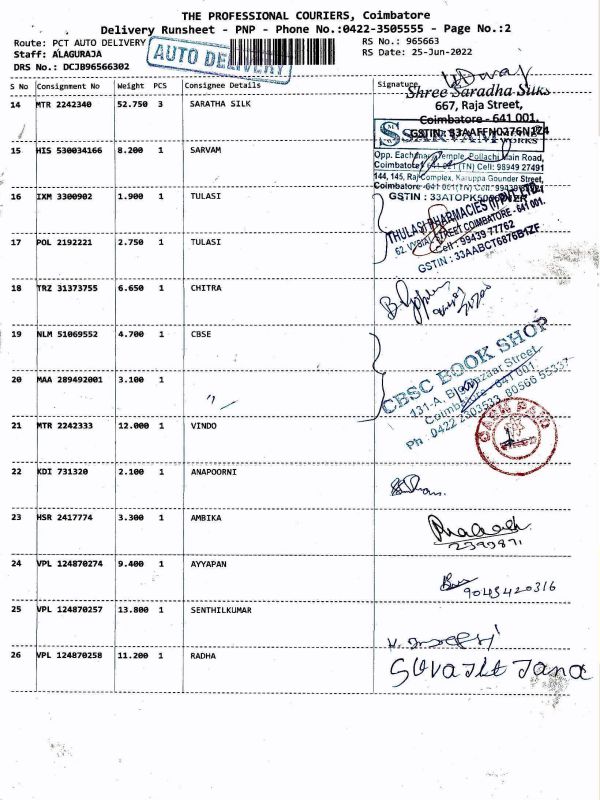 THE PROFESSIONAL COURIERS, Coimbatore
Delivery Runsheet - PNP - Phone No.:0422-3505555 - Page No.:2
Route: PCT AUTO DELIVERY
RS No.: 965663
Staff: ALAGURAJA
RS Date: 25-Jun-2022
DRS No.: DCJB96566302
AUTO DELIVERY
S No Consignment No Weight PCS Consignee Details Signature
14 MTR 2242340 52.750 3 SARATHA SILK
Shree Saradha Silks
667, Raja Street,
Coimbatore - 641 001.
GSTIN: 33AAFFN0276N1Z4
15 HIS 530034166 8.200 1 SARVAM
SARVAM
WORKS
Temple, Pollachi Main Road,
Coimbatore - 641 001 (TN) Cell: 98949 27491
144, 145, Raj Complex, Karuppa Gounder Street,
Coimbatore -641 001(TN) Cell:
GSTIN :
16 IXM 3300902 1.900 1 TULASI
THULASI PHARMACIES (I) PVT LTD
STREET COIMBATORE - 641 001.
Cell : 99439 77762
GSTIN : 33AABCT6676B1ZF
17 POL 2192221 2.750 1 TULASI
18 TRZ 31373755 6.650 1 CHITRA
19 NLM 51069552 4.700 1 CBSE
20 MAA 289492001 3.100 1 "
CBSC BOOK SHOP
131-A, Big Bazaar Street,
Coimbatore - 641 001
Ph : 0422 2303533, 80566 55337
21 MTR 2242333 12.000 1 VINDO
CASH PAID
22 KDI 731320 2.100 1 ANAPOORNI
23 HSR 2417774 3.300 1 AMBIKA
Prakash
2393871
24 VPL 124870274 9.400 1 AYYAPAN
9045420316
25 VPL 124870257 13.800 1 SENTHILKUMAR
26 VPL 124870258 11.200 1 RADHA
SUVAJIT JANA